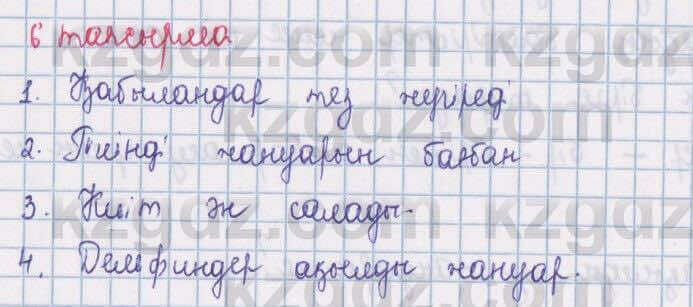 6 тапсырма
1. Қабыландар тез жүгіреді
2. Пішінді жануарын бағбан
3. Кит ән салады.
4. Дельфиндер ақылды жануар.
kzgdz.com